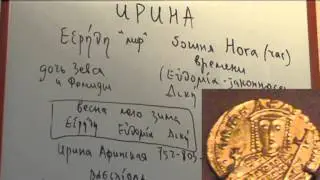 ИРИНА
Εἰρήνη "мир" богиня Hora (час)
времени
дочь Зевса
и Фемиды
(Εὐνομία - законность
Δική
весна лето зима
Εἰρήνη Εὐνομία Δική
Ирина Афинская 752-803